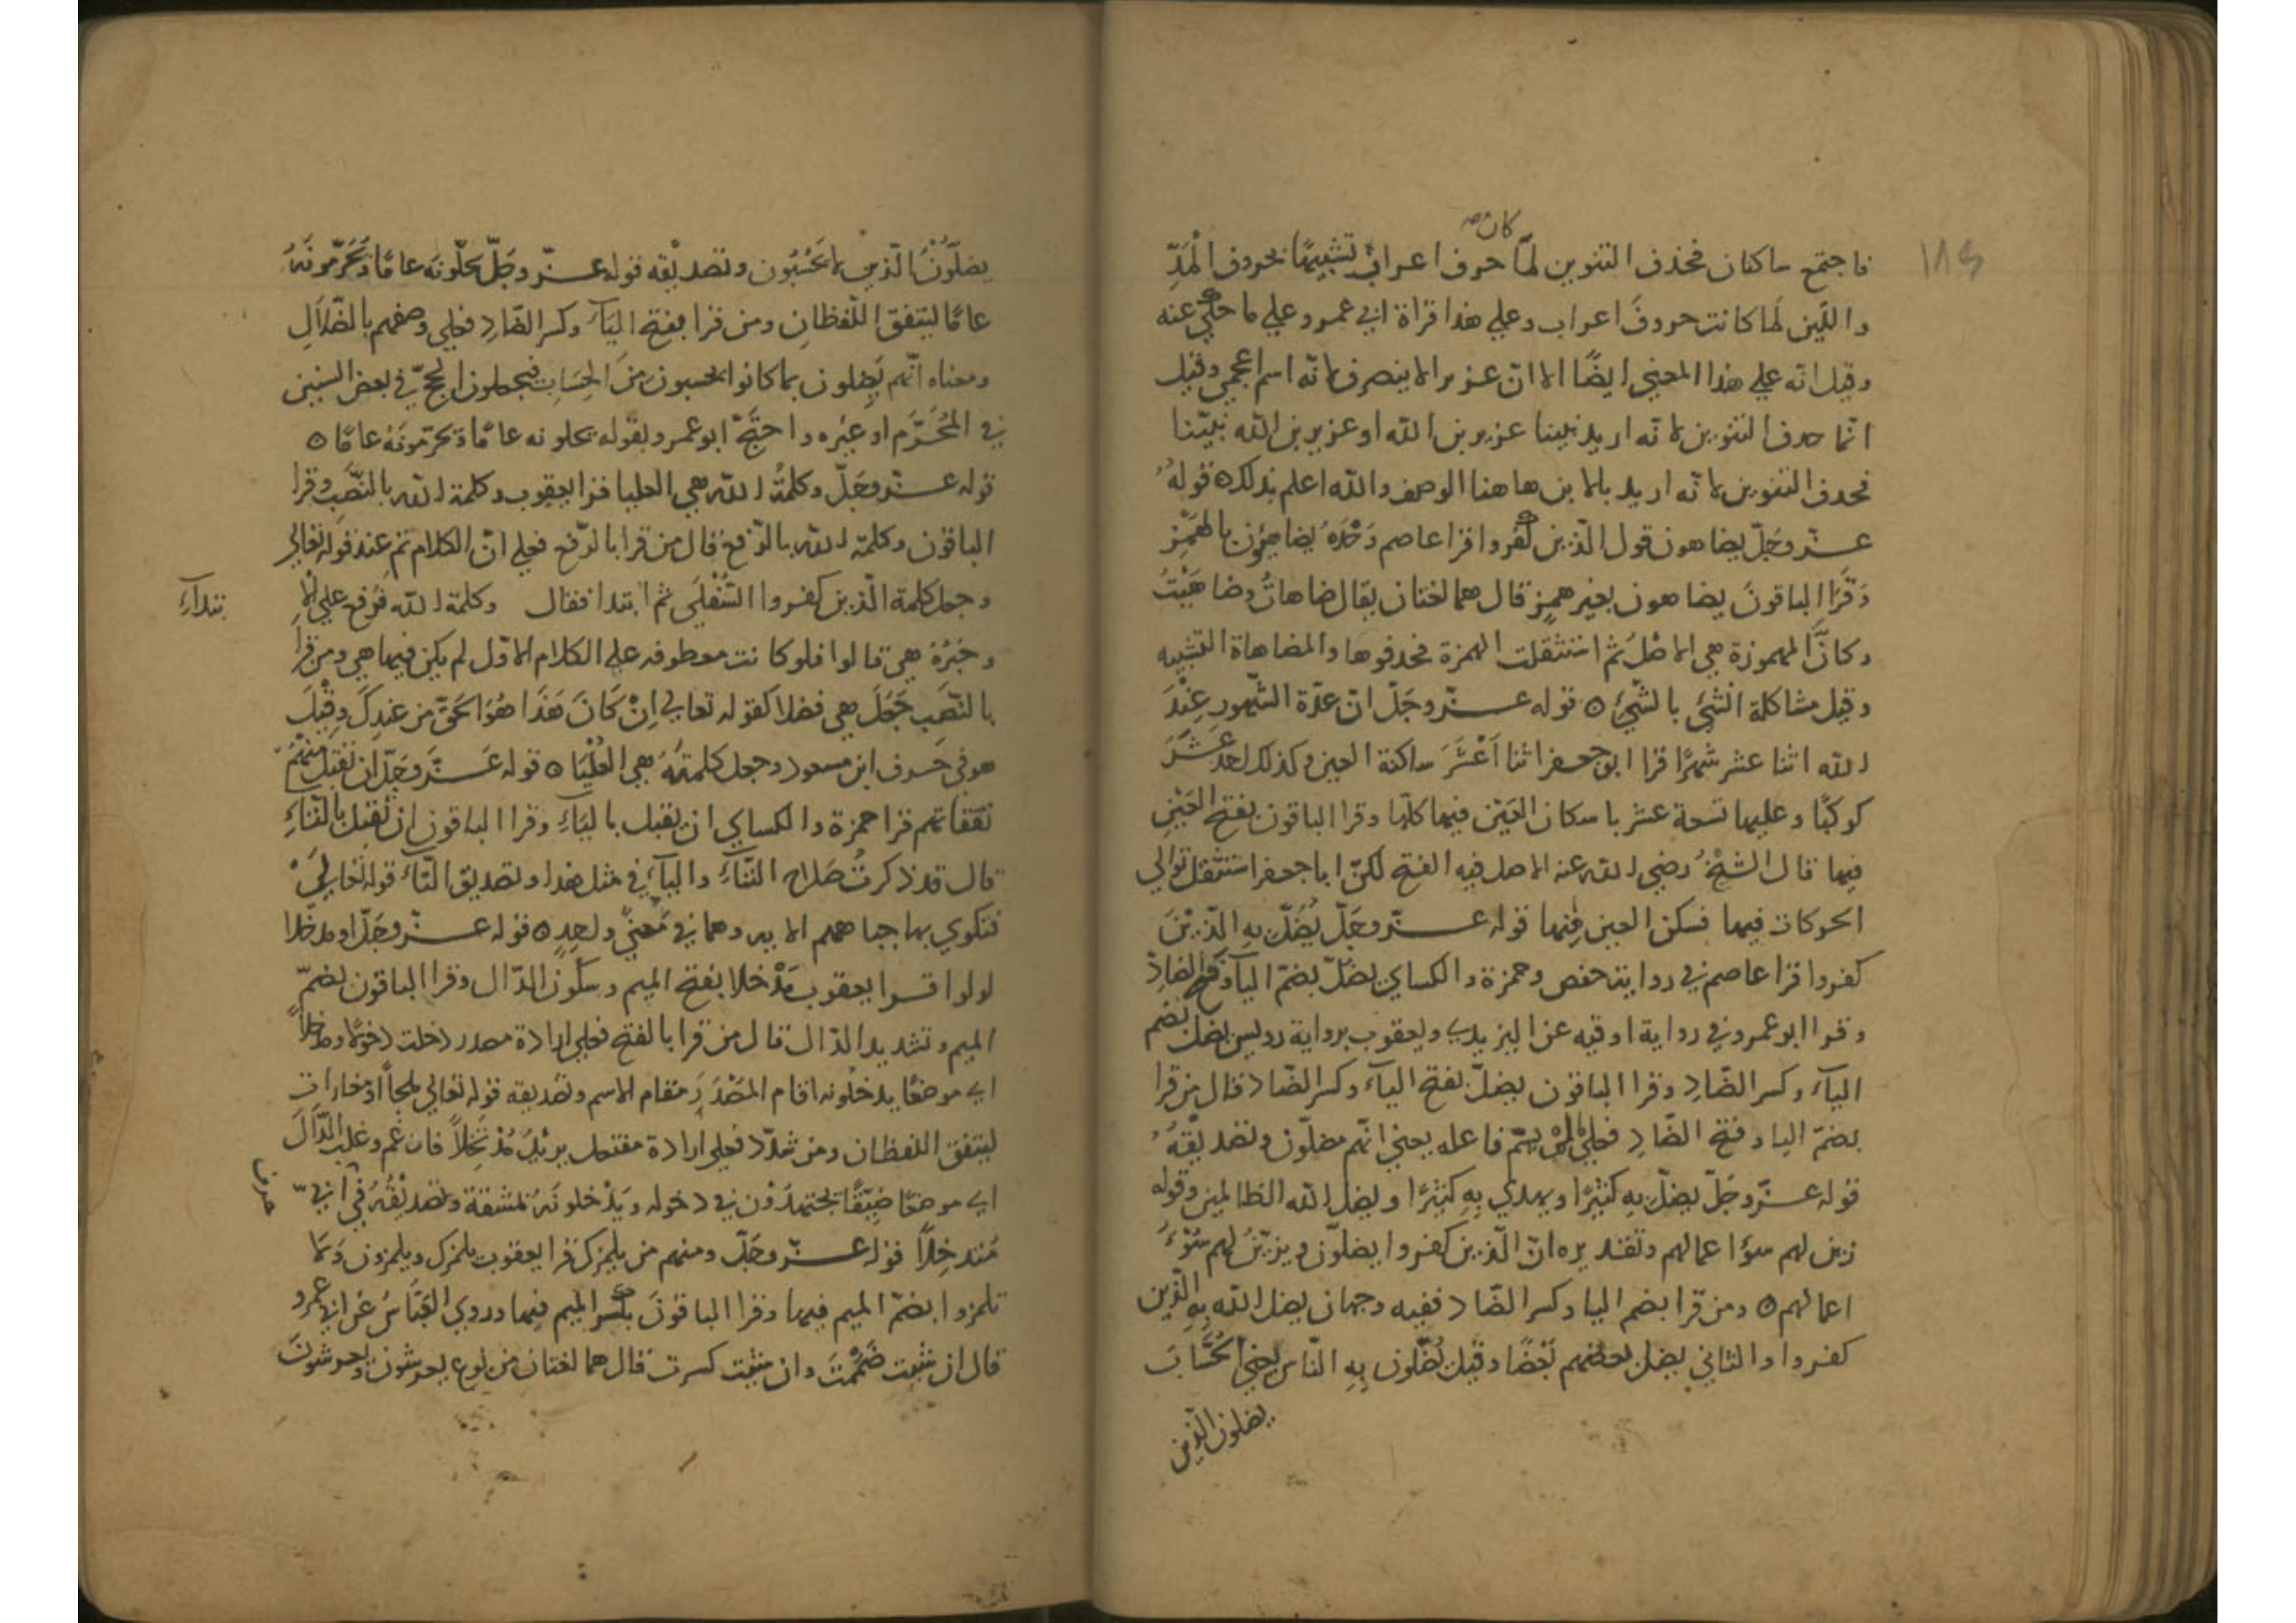 كان صح
فاجتمع ساكنان فحذف التنوين لمّا حرف اعراب تشبيهًا بحروف الْمَدِّ
١٨٤
واللّين لما كانت حروفَ اعراب وعلي هذا قراة ابي عمرو علي ما حكي عنه
وقيل انه علي هذا المعني ايضًا الا انّ عزيرا لا ينصرف لانه اسم اعجمي وقيل
انّما حذف التنوين لانّه اريد نبينا عزير بن الله او عزير بن الله نبيّنا
فحذف التنوين لانّه اريد بالابن هاهنا الوصف والله اعلم بذلك ٥ قولهُ
عزّ وجَلّ يضاهون قول الذّين كفروا قرا عاصم وَحْدَهُ يُضاهِؤُن بالهَمْزِ
وَقَرَا الباقونَ يضاهون بغير همزٍ قال هما لغتان يقال ضاهاتُ وضاهَيْتُ
وكانَّ المهموزة هي الاصْلُ ثم استثقلت الهمزة فحذفوها والمضاهاة التشبيه
وقيل مشاكلة الشيْ بالشّيْ ٥ قوله عزّ وجَلّ انّ عدّة الشّهور عِنْدَ
الله اثنا عشر شهرًا قرا ابو جعفر اثنا اَعْشَرَ ساكنة العين وكذلك احد عْشَرَ
كوكبًا وعليها تسعة عشر باسكان العَيْن فيها كلّها وقرا الباقون بفتح العَيْنِ
فيها قال الشيْخُ رضي الله عنه الاصل فيه الفتح لكنّ ابا جعفر استثقل توالي
الحركات فيها فسكن العين فِيها قوله عزّ وجَلّ يُضَلّ بِهِ الذّيْنَ
كفروا قرا عاصم في رواية حفص وحمزة والكساي يضلّ بضمّ اليآ وفتح الضادِ
وقرا ابو عمرو في رواية اوقيه عن اليزيدي ويعقوب برواية رويس يضل بضم
اليآء وكسر الضّادِ وقرا الباقون يضلّ بفتح اليآء وكسر الضّاد قال من قرا
بضمّ اليا وفتح الضّادِ فعلي لم يسمّ فاعله يعني انهّم مضلّون وتصديقهُ
قوله عزّ وجَلّ يضلّ بِهِ كثيرًا ويهدي بِهِ كثيرًا ويضل الله الظالمين وقوله
زين لهم سؤا عمالهم وتقديره انّ الّذين كفروا يضلّون ويزيّنُ لهم سُوْءُ
اعمالهم ٥ ومن قرا بضم اليا وكسر الضّاد ففيه وجهان يضل الله بِهِ الّذين
كفروا والثاني يضل بعضهم بَعْضًا وقيل يُضلّون بِهِ النّاس يعني الحُسَّابَ
يضلون الذين
يضلّوْنَ الّذين لا يَحْسُبُون وتصديقه قوله عزّ وجَلّ يحلّونَه عامًا وَيُحَرّمونَهُ
عامًا ليتفق اللّفظانِ ومن قرا بفتح اليَآءِ وكسر الضّادِ فعلي وصفهم بالضّلالِ
ومعناه انّهم يَضِلون بما كانوا يحسبون منَ الحِسَابِ فيجعلون الحجّ في بعض السنين
في المُحَرَّم او غيره واحتجّ ابو عمرو بقوله يحلونه عامًا ويحرّمونَهُ عامًا ٥
قوله عزّ وجَلّ وكلمةُ الله هي العليا قرا يعقوب وكلمة الله بالنّصَب وقرا
الباقون وكلمة الله بالرّفع قال من قرا بالرّفع فعلي انّ الكلام تم عِند قوله تعالي
وجعل كلمة الّذين كفروا السُّفْلَي ثم ابتدا فقال وكلمة الله فرُفع علي الا
بتدآءِ
وخبَرُه هي قالوا فلو كانت معطوفة علي الكلام الاوّل لم يكن فيها هي ومن قرأ
بالنّصَب جَعَلَ هي فصلا كقوله تعالي اِنْ كَانَ هَذَا هُوَ الحَقّ من عِندِكَ وقِيْلَ
هو في حَرف ابن مسعود وجعل كلمتَهُ هي العُلْيَا ٥ قوله عَزَّ وجَلّ ان تقبل مِنْهُمْ
نفقاتهم قرا حمزة والكساي ان يقبل باليَاءِ وقرا الباقون ان تقبل بالتّاءِ
قال قد ذكرتُ صَلاح التّاءِ واليآء في مثل هذا وتصديق التّاءَ قوله تعالي
فتكوي بها جباههم الايه وهما في مَعنيً واحِدٍ ٥ قوله عزّ وجَلّ او مدّخلا
لولوا قرا يعقوب مَدْخلا بفتح الميم وسكون الدّال وقرا الباقون بضمّ
الميم وتشديد الدّال قال من قرا بالفتح فعلي ارادة مصدر دخلت دخولا ومدخلاً
اي موضعًا يدخلونه اقام المَصْدَرَ مقام الاسم وتصديقه قوله تعالي ملجأً او مغارات
ليتفق اللفظان ومن شدّد فعلي ارادة مفتعل يريْدُ مُدْتَخِلاً فادغم وغلب الدّالَ
اي موضعًا ضَيّقًا يجتهدُوْن في دخوله ويَدْخلونَهُ بمشقة وتصديْقُهُ في ابيّ
حرف
مُندخِلاً قوله عزّ وجَلّ ومنهم من يلمِزك قرا يعقوب يلمزك ويلمزون وَلا
تلمزوا بضمّ الميم فيها وقرا الباقونَ بكسر الميم فيها وروي العَبّاسُ عَن ابي عمرو
قال ان شئت ضَمَمْتَ وان شئت كسرت قال هما لغتان من لوع يعرشون ويعرشونَ